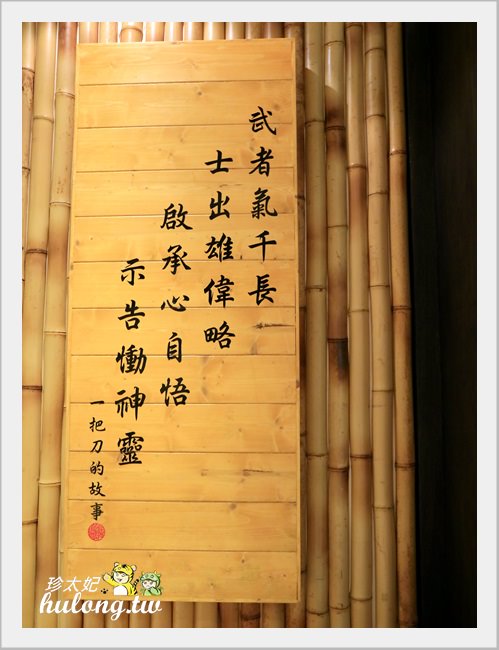 武者氣千長
士出雄偉略
啟承心自悟
示告慟神靈
一把刀的故事
珍太妃
hulong.tw